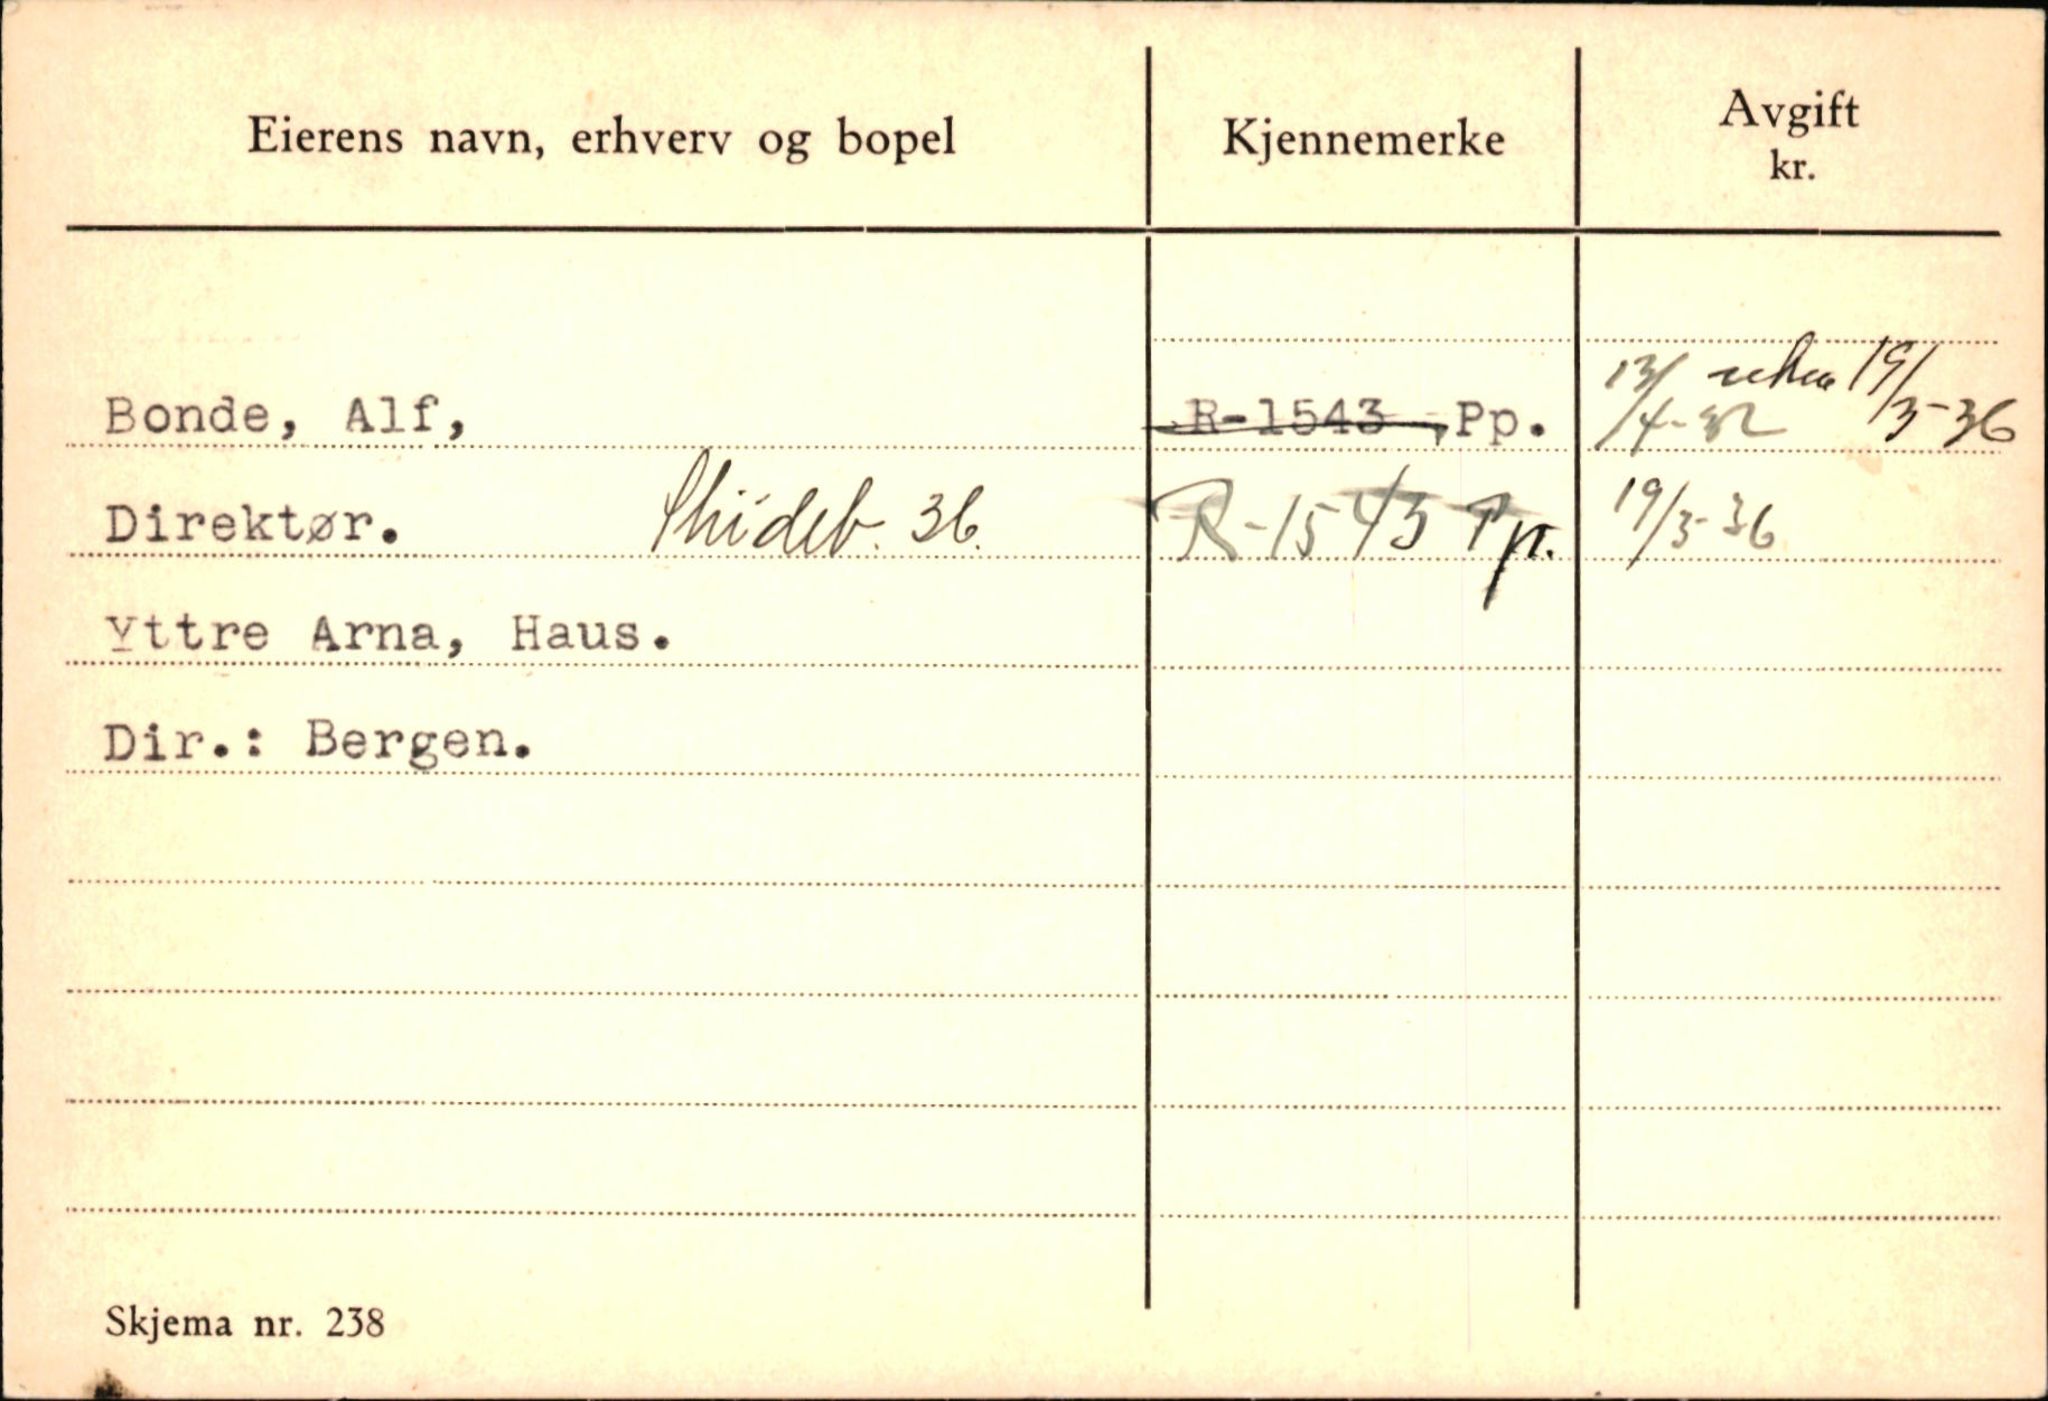 Eierens navn, erhverv og bopel
Kjennemerke
Avgift
kr.
Bonde, Alf, R-1543 , Pp. 13/4-32 19/3-36
Direktør. 36. R-1543 Pp. 19/3-36
Yttre Arna, Haus.
Dir.: Bergen.
Skjema nr. 238